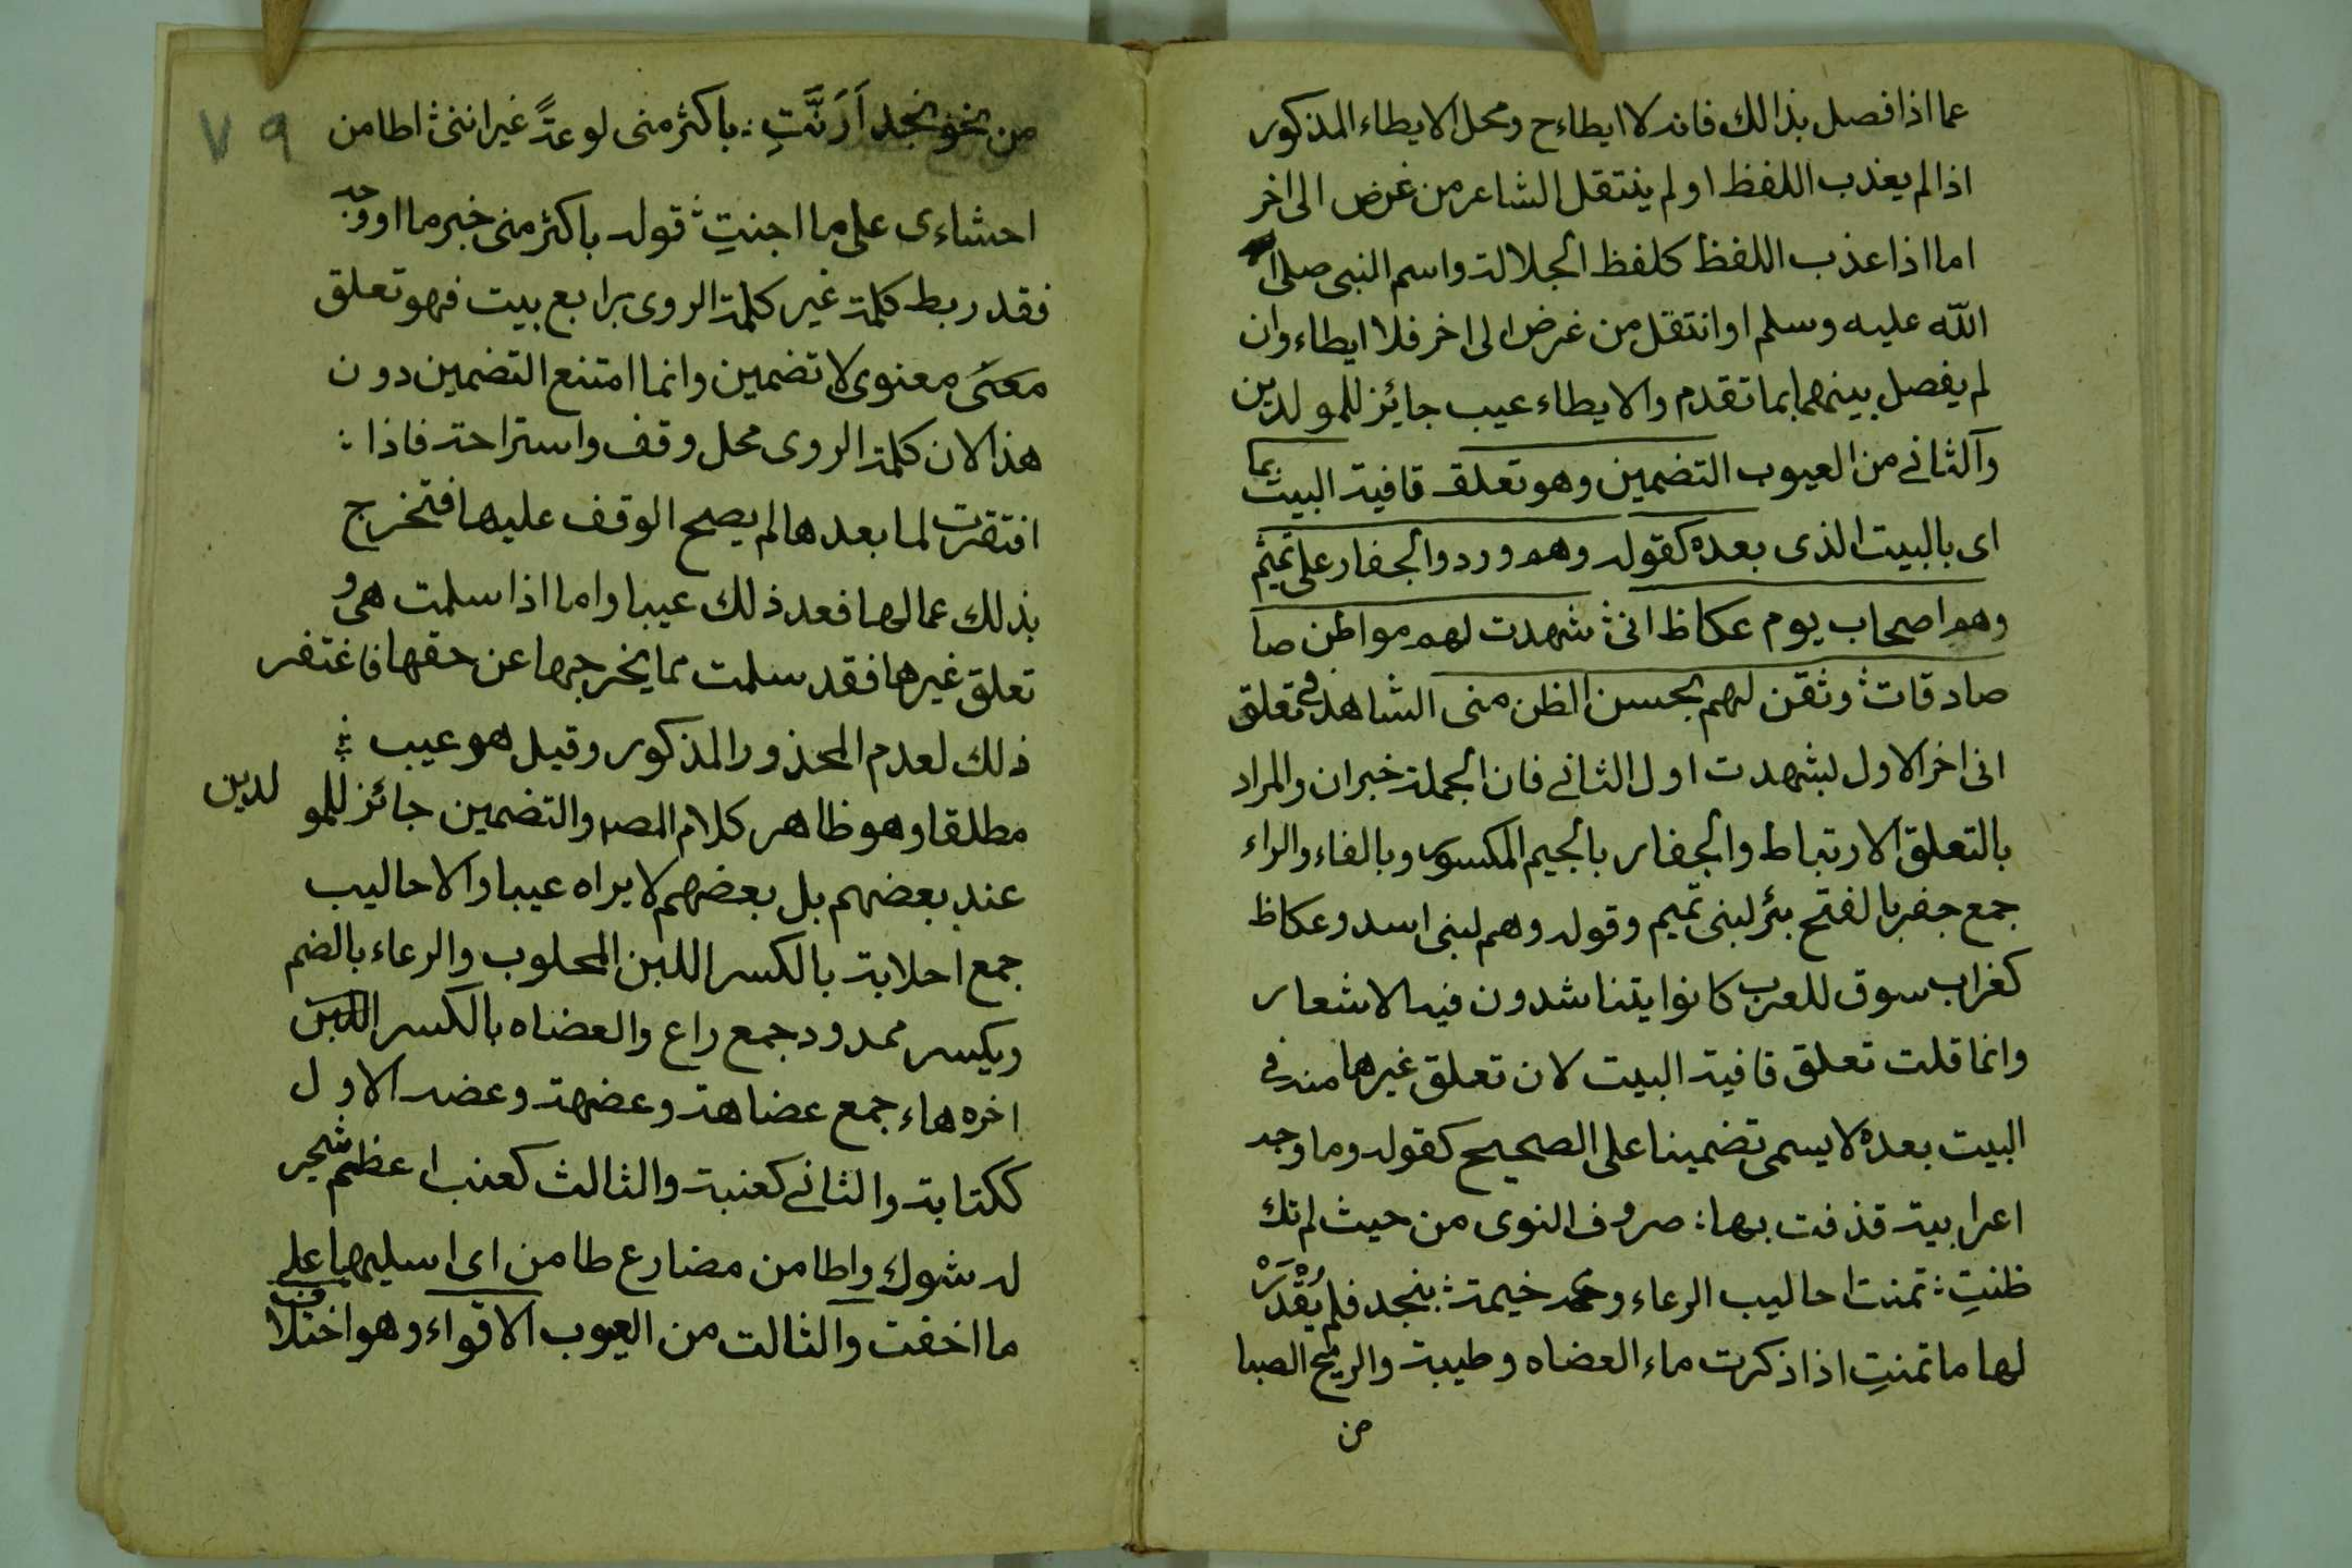 عما اذا فصل بذالك فانه لا ايطاء ح ومحل الايطاء المذكور
اذا لم يعذب اللفظ او لم ينتقل الشاعر من غرض الى اخر
اما اذا عذب اللفظ كلفظ الجلالة واسم النبى صلى
الله عليه وسلم او انتقل من غرض الى اخر فلا ايطاء وان
لم يفصل بينهما بما تقدم والايطاء عيب جايز للمولدين
والثانى من العيوب التضمين وهو تعلق قافية البيت بما
اى بالبيت الذى بعده كقوله وهم وردوا الجفار على تميم
وهم اصحاب يوم عكاظ انى شهدت لهم مواطن صا
صادقات وثقن لهم بحسن الظن منى الشاهد فى تعلق
انى اخر الاول بشهدت اول الثانى فان الجملة خبر ان والمراد
بالتعلق الارتباط والجفار بالجيم المكسور وبالفاء والراء
جمع جفر بالفتح بئر لبنى تميم وقوله وهم لبنى اسد وعكاظ
كغراب سوق للعرب كانوا يتناشدون فيه الاشعار
وانما قلت تعلق قافية البيت لان تعلق غيرها منه فى
البيت بعده لا يسمى تضمينا على الصحيح كقوله وما وجد
اعرابية قذفت بها : صروف النوى من حيث لم تك
ظنتِ : تمنت احاليب الرعاء وخيمة : بنجد فلم يُقْدَرْ
لها ما تمنتِ اذا ذكرت ماء العضاه وطيبة والريح الصبا
من
٧٩
من نحو نجد اَرَنَّتِ : باكثر منى لوعةً غير اننى اطامن
احشاءى على ما اجنتِ قوله باكثر منى خبر ما او وجد
فقد ربط كلمة غير كلمة الروى برابع بيت فهو تعلق
معنى معنوى لا تضمين وانما امتنع التضمين دون
هذا لان كلمة الروى محل وقف واستراحة فاذا :
افتقرت لما بعدها لم يصح الوقف عليها فتخرج
بذلك عما لها فعد ذلك عيبا واما اذا سلمت هى و
تعلق غيرها فقد سلمت مما يخرجها عن حقها فاغتفر
ذلك لعدم المحذور المذكور وقيل هو عيب :
مطلقا وهو ظاهر كلام المصر والتضمين جائز للمو لدين
عند بعضهم بل بعضهم لا يراه عيبا والاحاليب
جمع احلابة بالكسر اللبن المحلوب والرعاء بالضم
ويكسر ممدود جمع راع والعضاه بالكسر اللبن
اخره هاء جمع عضاهة وعضهة وعضه الاول
ككتابة والثانى كعنبة والثالث كعنب اعظم شجر
له شوك واطامن مضارع طامن اى اسليها على
ما اخفت والثالث من العيوب الاقواء وهو اختلاف